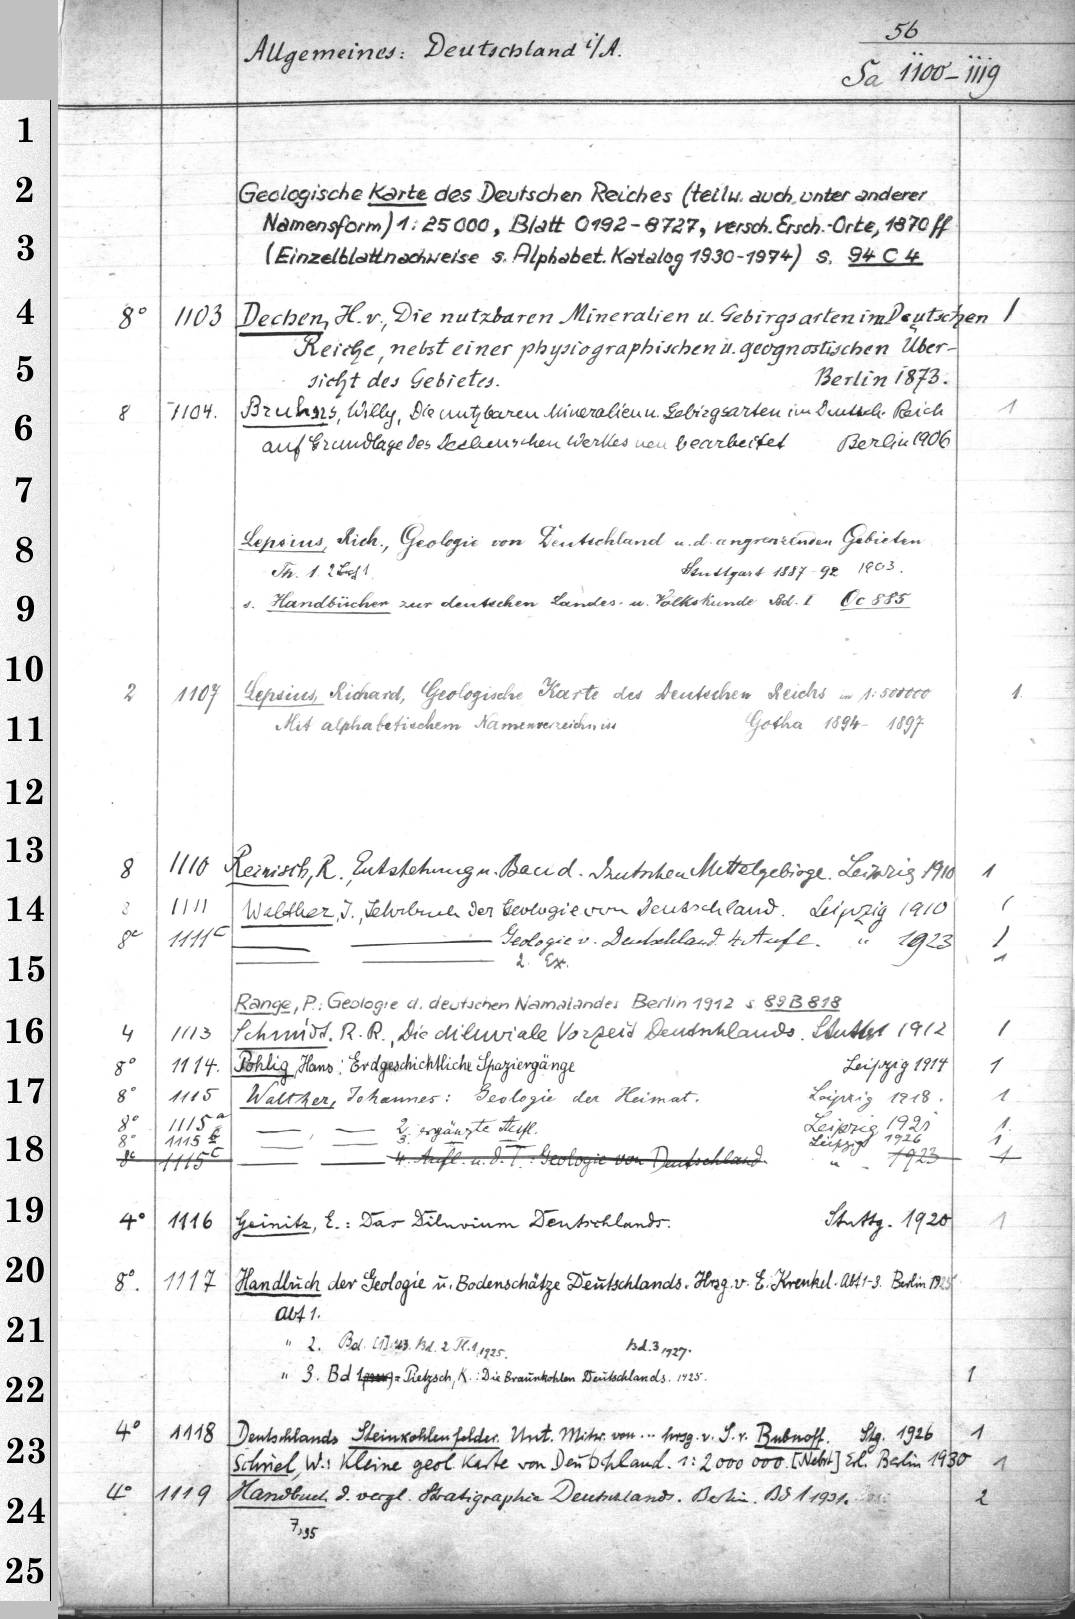 56
Allgemeines: Deutschland i/A.
Sa 1100-1119
1
2
Geologische Karte des Deutschen Reiches (teilw. auch unter anderer
Namensform) 1:25000, Blatt 0192-8727, versch. Ersch.-Orte, 1870 ff
3
(Einzelblattnachweise s. Alphabet. Katalog 1930-1974) s. 94 C 4
4
8° 1103 Dechen, H. v., Die nutzbaren Mineralien u. Gebirgsarten im Deutschen 1
Reiche, nebst einer physiographischen u. geognostischen Über-
5
sicht des Gebietes. Berlin 1873.
8 1104. Bruhns, Willy, Die nutzbaren Mineralien u. Gebirgsarten im Deutsch. Reich 1
6
auf Grundlage des Dechenschen Werkes neu bearbeitet Berlin 1906
7
8
Lepsius, Rich., Geologie von Deutschland u. d. angrenzenden Gebieten
Th. 1. 2 Stuttgart 1887-92 1903.
9
s. Handbücher zur deutschen Landes- u. Volkskunde Bd. I Oc 885
10
2 1107 Lepsius, Richard, Geologische Karte des Deutschen Reichs in 1:500000 1.
11
Mit alphabetischem Namenverzeichniss Gotha 1894- 1897
12
13
8 1110 Reinisch, R., Entstehung u. Bau d. Deutschen Mittelgebirge. Leipzig 1910 1
14
8 1111 Walther, J., Lehrbuch der Geologie von Deutschland. Leipzig 1910 1
8° 1111c Geologie v. Deutschland. 4. Aufl. " 1923 1
15
2. Ex. 1
Range, P.: Geologie d. deutschen Namalandes Berlin 1912 s 89 B 818
16
4 1113 Schmidt, R. R., Die diluviale Vorzeit Deutschlands. Stuttg 1912 1
8° 1114. Pohlig, Hans: Erdgeschichtliche Spaziergänge Leipzig 1914 1
17
8° 1115 Walther, Johannes: Geologie der Heimat. Leipzig 1918. 1
8° 1115a 2. ergänzte Aufl. Leipzig 1921 1.
8° 1115b 3. Leipzig 1926 1
18
8° 1115c 4. Aufl. u. d. T.: Geologie von Deutschland " 1923 1
19
4° 1116 Geinitz, E.: Das Diluvium Deutschlands. Stuttg. 1920 1
20
8°. 1117 Handbuch der Geologie u. Bodenschätze Deutschlands. Hrsg. v. E. Krenkel. Abt 1-3. Berlin 1925
Abt 1.
21
" 2. Bd. Bd. 2 1925. Bd. 3 1927.
" 3. Bd 1 = Pietzsch, K.: Die Braunkohlen Deutschlands. 1925. 1
22
4° 1118 Deutschlands Steinkohlenfelder. Unt. Mitw. von ... hrsg. v. S. v. Bubnoff. Stg. 1926 1
23
Schriel, W.: Kleine geol. Karte von Deutschland. 1:2000 000. [Nebst] Erl. Berlin 1930 1
4° 1119 Handbuch d. vergl. Stratigraphie Deutschlands. Berlin. Bd 1 1931. 2
24
7,95
25